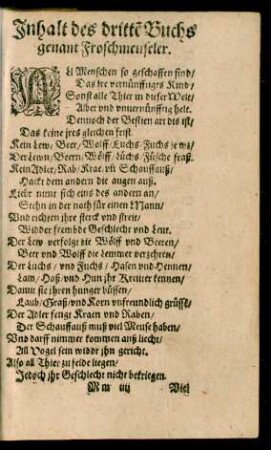 Inhalt des drittē Buchs
genant Froschmeuseler.
Menschen so geschaffen sind/
Das sie vernünfftiges Kind/
Sonst alle Thier in dieser Welt/
Alber vnd vnuernünfftig helt.
Dennoch der Bestien art dis ist/
Das keine jres gleichen frist.
Kein Lew/ Beer/ Wolff/ Luchs/ Fuchs je was/
Der Lewn/ Beern/ Wölff/ Lüchs/ Füchse fraß.
Kein Adler/ Rab/ Krae, vñ Schauffauß/
Hackt dem andern die augen auß.
nimt sich eins des andern an/
Stehn in der noth für einen Mann/
Vnd richten jhre sterck vnd streit/
Widder frembde Geschlecht vnd Leut.
Der Lew verfolgt die Wölff vnd Beeren/
Beer vnd Wolff die Lemmer verzehren/
Der Luchs/ vnd Fuchs/ Hasen vnd Hennen/
Lam/ Haß/ vnd Hun jhr Kreuter kennen/
Damit sie jhren hunger büssen/
Laub/ Graß/ vnd Korn vnfreundlich grüssē/
Der Adler fengt Kraen vnd Raben/
Der Schauffauß muß viel Meuse haben/
Vnd darff nimmer kommen ans liecht/
All Vogel sein widdr jhn gericht.
Also all Thier zu felde liegen/
Jedoch jhr Geschlecht nicht bekriegen.
Mm iiij Viel